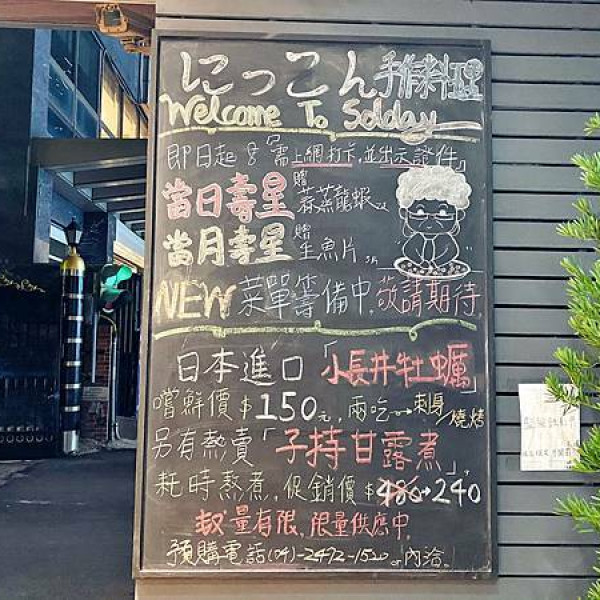 にっこん手作料理
Welcome To Solday
即日起 「需上網打卡,並出示證件」
當日壽星 贈 蒜蒸龍蝦 x2
當月壽星 贈 生魚片 5片
NEW 菜單籌備中,敬請期待.
日本進口「小長井牡蠣」
嚐鮮價$150元,兩吃→刺身/燒烤
另有熱賣「子持甘露煮」,
耗時熬煮,促銷價$480→240
数量有限,限量供應中.
預購電話(04)-2492-1520 or 內洽.